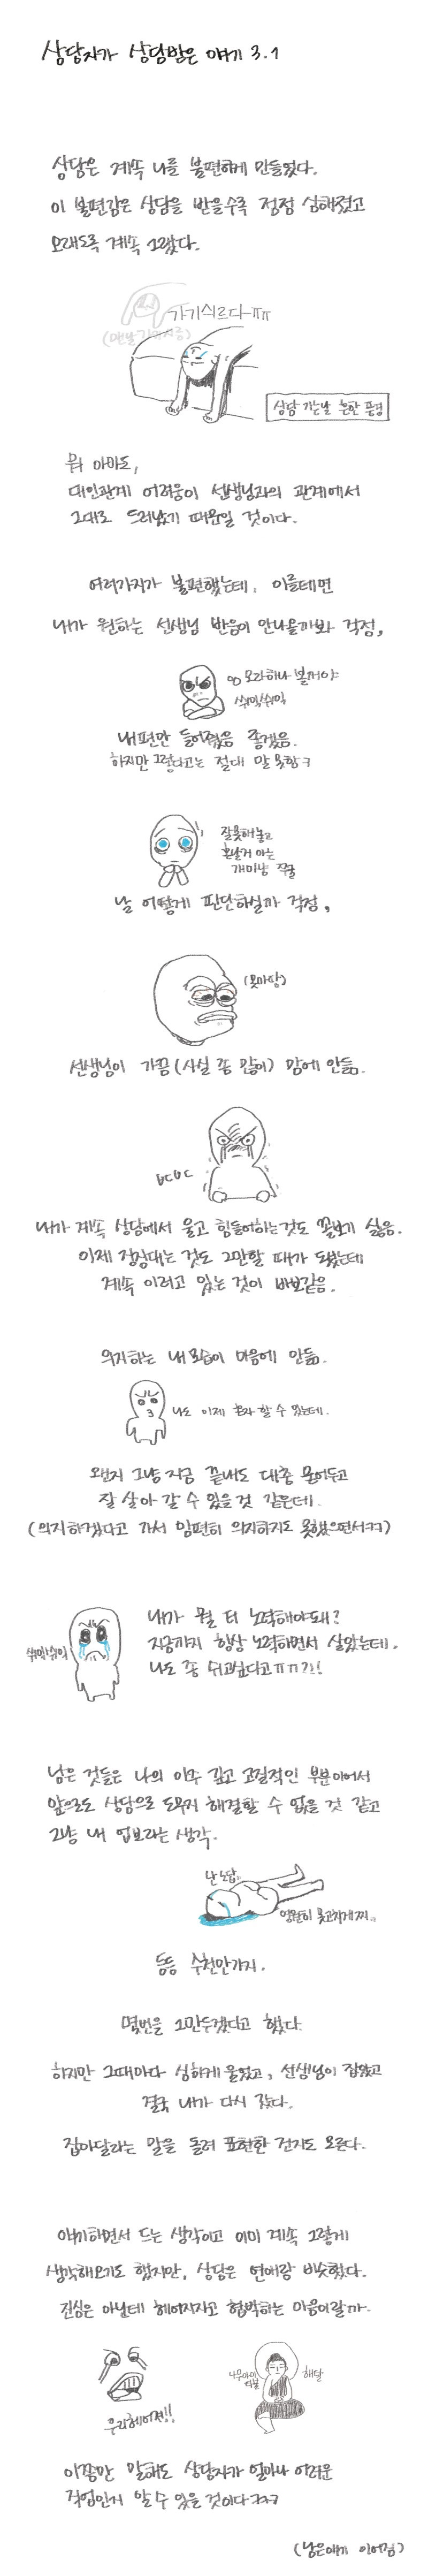 상담자가 상담받은 이야기 3.1
상담은 계속 나를 불편하게 만들었다.
이 불편감은 상담을 받을수록 점점 심해졌고
오래도록 계속 그랬다.
가기시르다-ㅠㅠ
(맨날
상담 가는날 흔한 풍경
뭐 아마도,
대인관계 어려움이 선생님과의 관계에서
그대로 드러났기 때문일 것이다.
여러가지가 불편했는데, 이를테면
내가 원하는 선생님 반응이 안나올까봐 걱정,
모라하나 볼꺼야
쒸익쒸익
내편만 들어줬음 좋겠음.
하지만 그렇다고는 절대 말 못함ㅋ
잘못해놓고
혼날거 아는
개미냥 쭈굴
날 어떻게 판단하실까 걱정,
(못마땅)
선생님이 가끔(사실 좀 많이) 맘에 안듦.
ㅂㄷㅂㄷ
내가 계속 상담에서 울고 힘들어하는것도 꼴보기 싫음.
이제 징징대는 것도 그만할 때가 됐는데
계속 이러고 있는 것이 바보같음.
의지하는 내모습이 마음에 안듦.
나도 이제 혼자 할 수 있는데.
왠지 그냥 지금 끝내도 대충 묻어두고
잘 살아 갈 수 있을것 같은데.
(의지하겠다고 가서 맘편히 의지하지도 못했으면서ㅋㅋ)
쒸익쒸익
내가 뭘 더 노력해야돼?
지금까지 항상 노력하면서 살았는데.
나도 좀 쉬고싶다고ㅠㅠ?!!
남은 것들은 나의 아주 깊고 고질적인 부분이어서
앞으로도 상담으로 도무지 해결할 수 없을 것 같고
그냥 내 업보라는 생각.
난 노답..
영원히 못고치겠지..
등등 수천만가지.
몇번을 그만두겠다고 했다.
하지만 그때마다 심하게 울었고, 선생님이 잡았고
결국 내가 다시 갔다.
잡아달라는 말을 돌려 표현한 건지도 모른다.
얘기하면서 드는 생각이고 이미 계속 그렇게
생각해오기도 했지만, 상담은 연애랑 비슷했다.
진심은 아닌데 헤어지자고 협박하는 마음이랄까.
우리헤어져!!
나무아미
타불
해탈
이쯤만 말해도 상담자가 얼마나 어려운
직업인지 알 수 있을 것이다ㅋㅋㅋ
(남은얘기 이어짐)